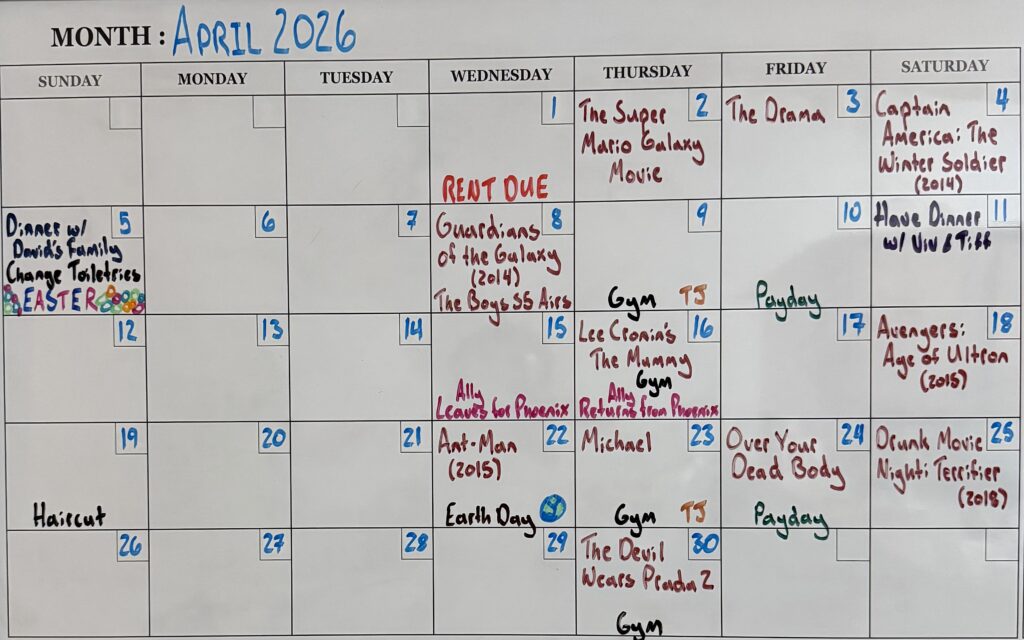 MONTH: APRIL 2026
SUNDAY MONDAY TUESDAY WEDNESDAY THURSDAY FRIDAY SATURDAY
1
RENT DUE
2
The Super
Mario Galaxy
Movie
3
The Drama
4
Captain
America: The
Winter Soldier
(2014)
5
Dinner w/
David's Family
Change Toiletries
EASTER
6
7
8
Guardians
of the Galaxy
(2014)
The Boys S5 Airs
9
Gym TJ
10
Payday
11
Have Dinner
w/ Viv & Tiff
12
13
14
15
Ally
Leaves for Phoenix
16
Lee Cronin's
The Mummy
Gym
Ally
Returns from Phoenix
17
18
Avengers:
Age of Ultron
(2015)
19
Haircut
20
21
22
Ant-Man
(2015)
Earth Day
23
Michael
Gym TJ
24
Over Your
Dead Body
Payday
25
Drunk Movie
Night: Terrifier
(2018)
26
27
28
29
30
The Devil
Wears Prada 2
Gym